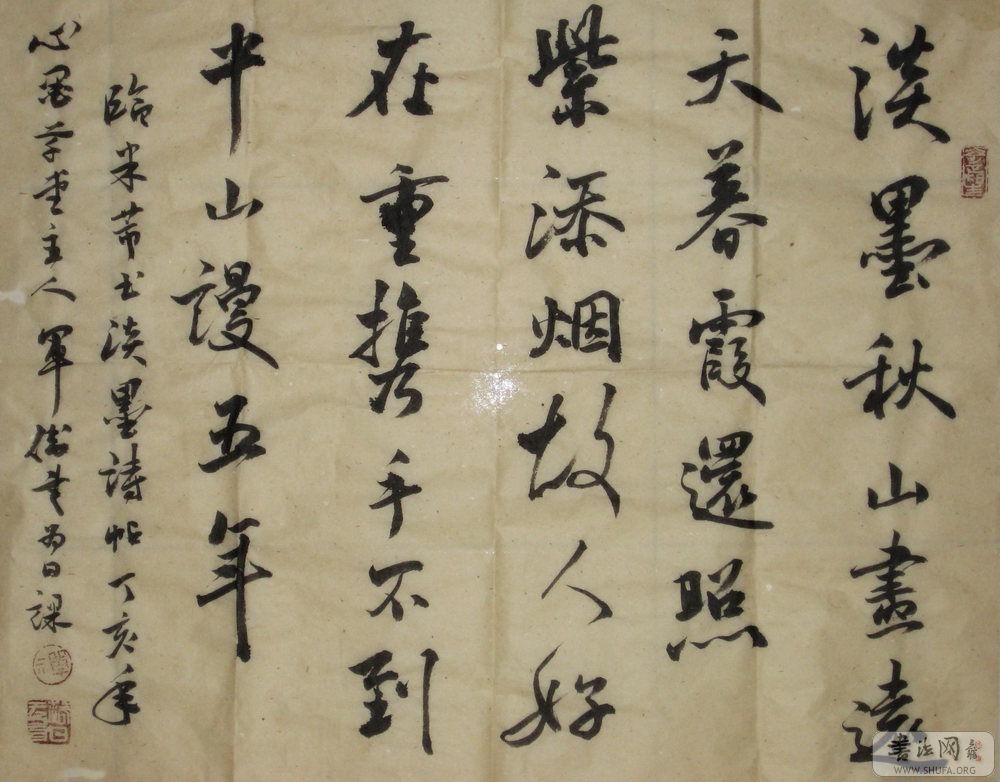 淡墨秋山畫遠
天暮霞還照
紫添烟故人好
在重攜手不到
半山謾五年
臨米芾書淡墨詩帖丁亥年
心墨草堂主人軍俊書為日課
書法网
WWW.SHUFA.ORG